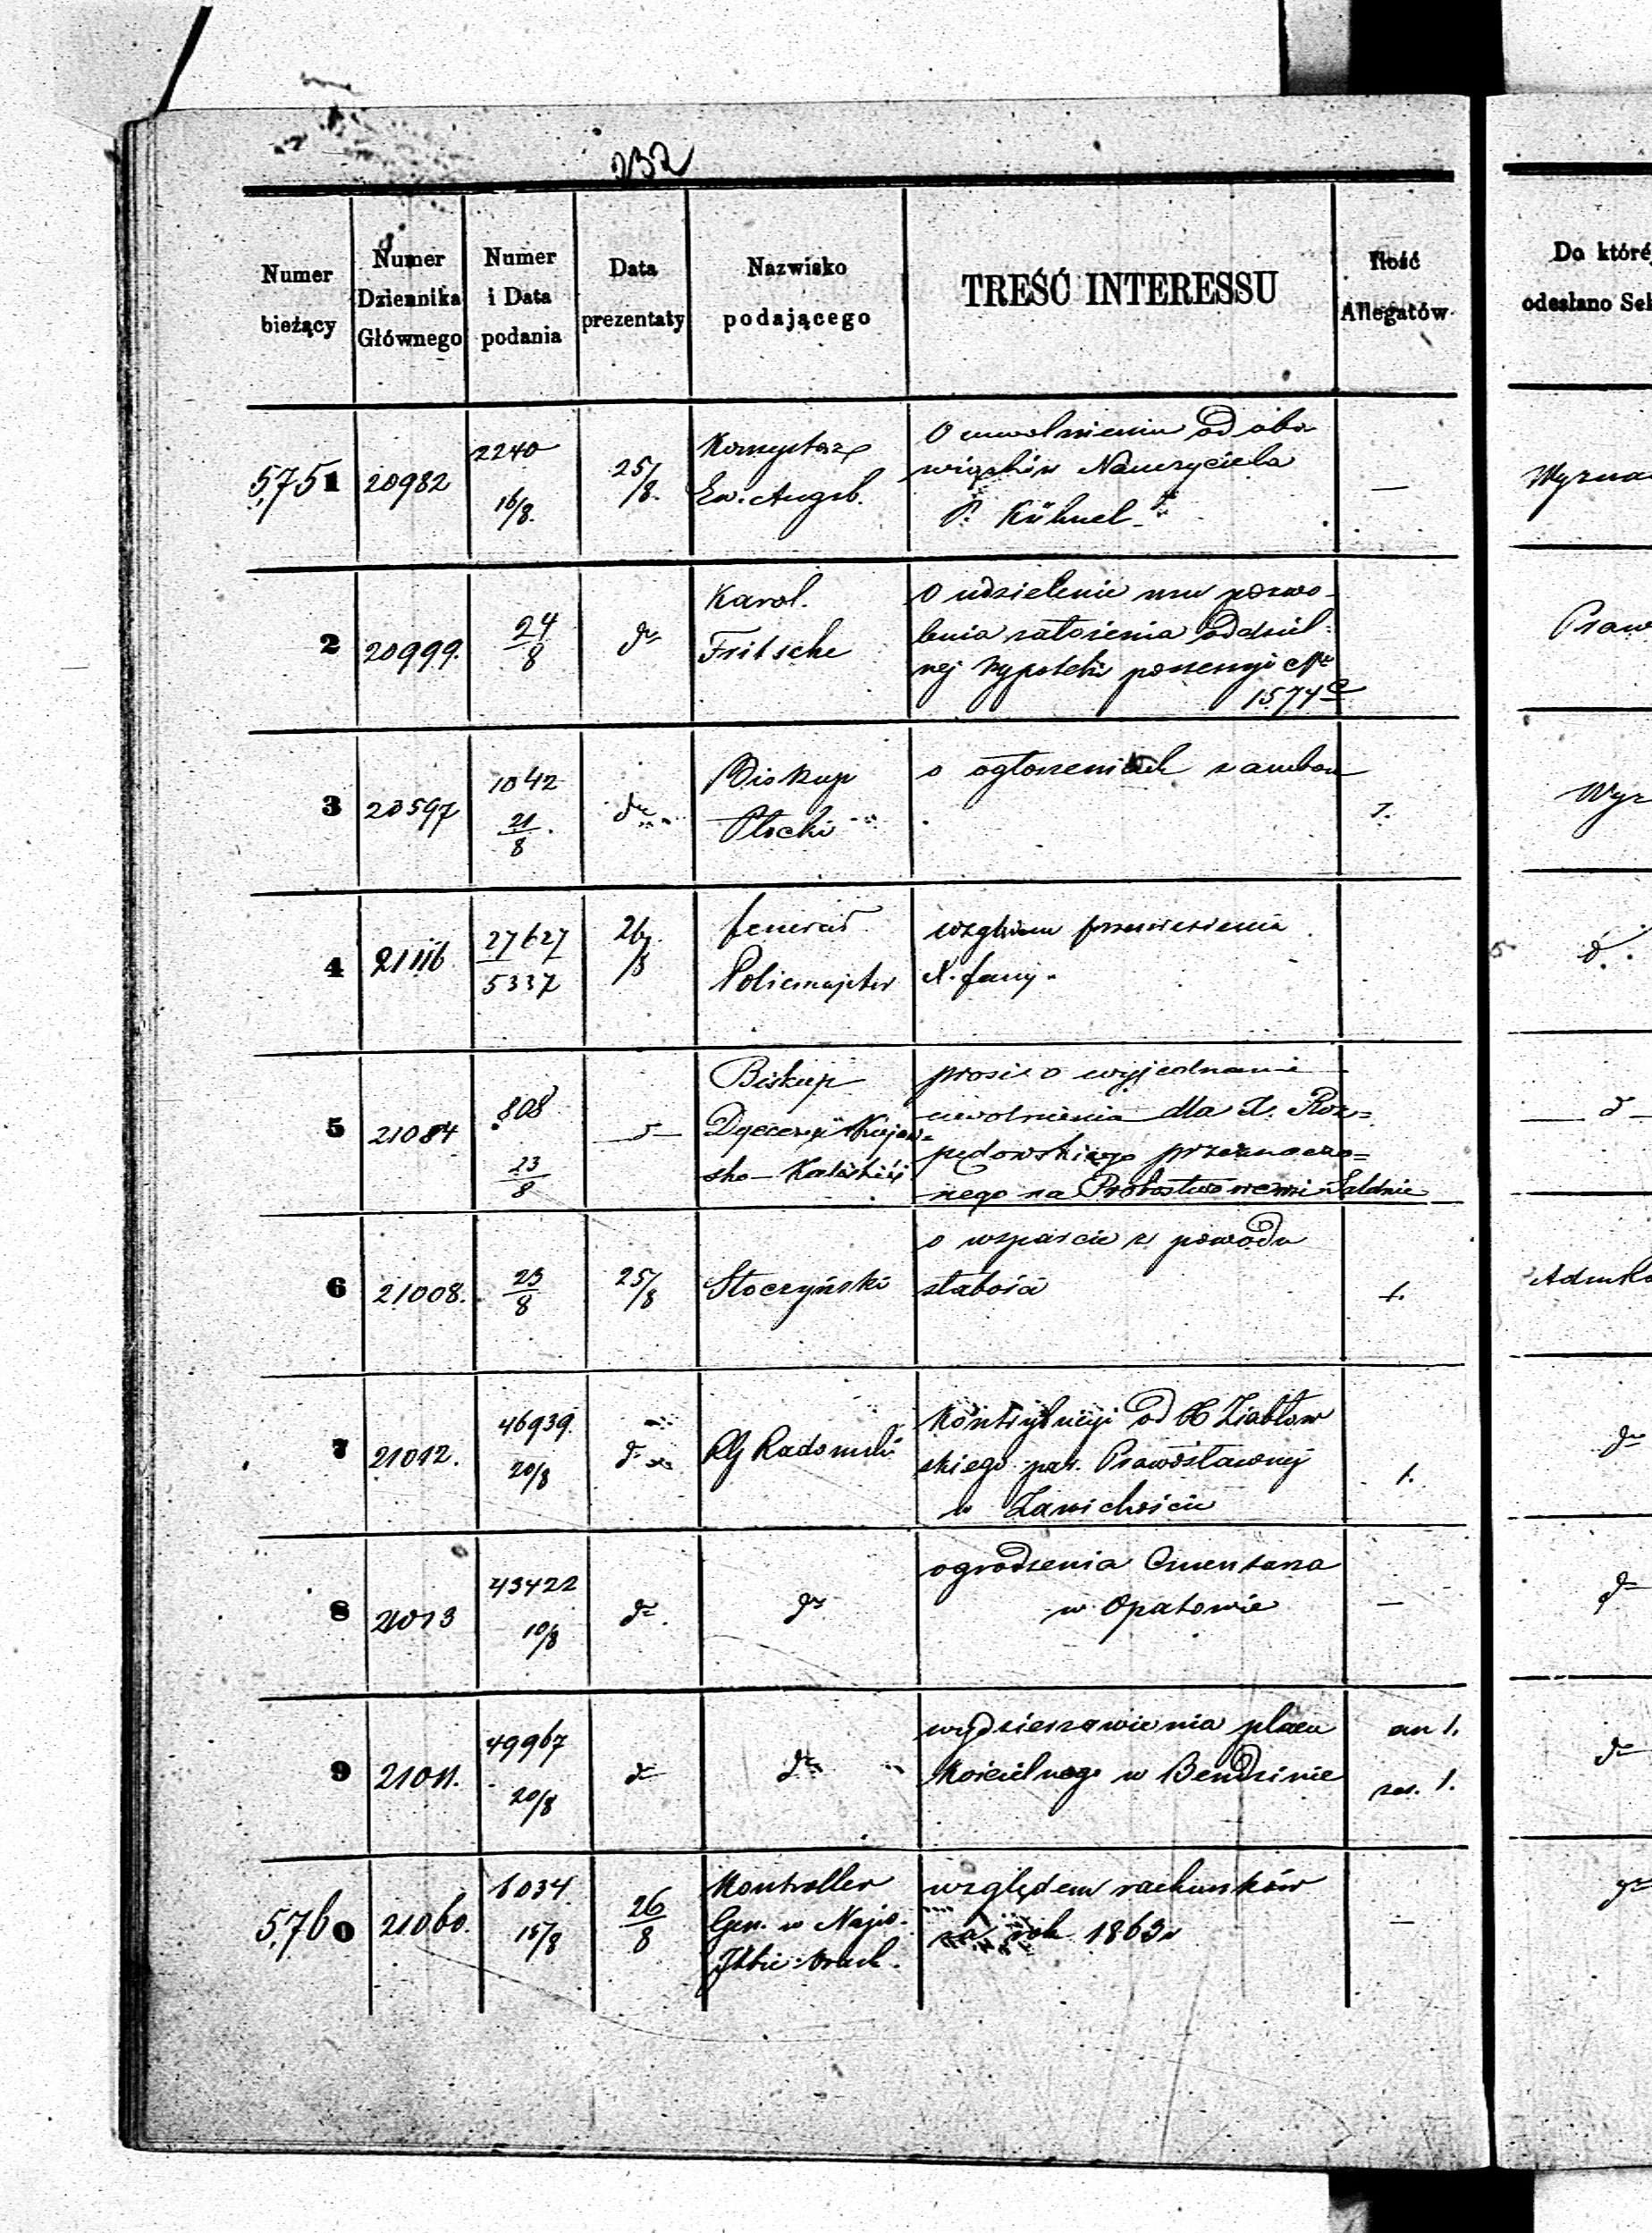 232
Numer bieżący | Numer Dziennika Głównego | Numer i Data podania | Data prezentaty | Nazwisko podającego | TREŚĆ INTERESSU | Ilość Allegatów | Do któréj odesłano Sek
5,751 | 20982 | 2240 16/8. | 25/8. | Konsystorz Ew. Augsb. | O uwolnieniu od obowiązków Nauczyciela P. Kühnel | — | Wyzna
2 | 20999. | 24/8 | do | Karol Fritsche | O udzielenie mu pozwolenia założenia oddzielnej hypoteki possessyi No 1574 C | Praw
3 | 20597 | 1042 21/8. | do | Biskup Płocki | o ogłoszeniach z ambon | 1. | Wyz
4 | 21116 | 27627 5337 | 26/8 | Generał Policmajster | względem przeniesienia X. | d.
5 | 21084 | 808 23/8 | d | Biskup Dyecezyi Kujawsko-Kaliskiéj | prosi o wyjednanie uwolnienia dla X. Rozpędowskiego przeznaczonego na Probostwo | d
6 | 21008. | 23/8 | 25/8 | Stoczyński | o wsparcie z powodu słabości | 1.
7 | 21012. | 46939. 20/8 | do | RG Radomski | Kontrybucyi od skiego par. Prawosławnéj w Zawichoście | 1. | do
8 | 21013 | 43422 10/8 | do | do | ogrodzenia Cmentarza w Opatowie | — | do
9 | 21011. | 49967 20/8 | do | do | wydzierżawienia placu Kościelnego w Bendzinie | an 1. zes. 1. | do
5,760 | 21060. | 6034 15/8 | 26/8 | Kontroller Gen. w Najw. Izbie Obrach. | względem rachunków za rok 1863 | — | do